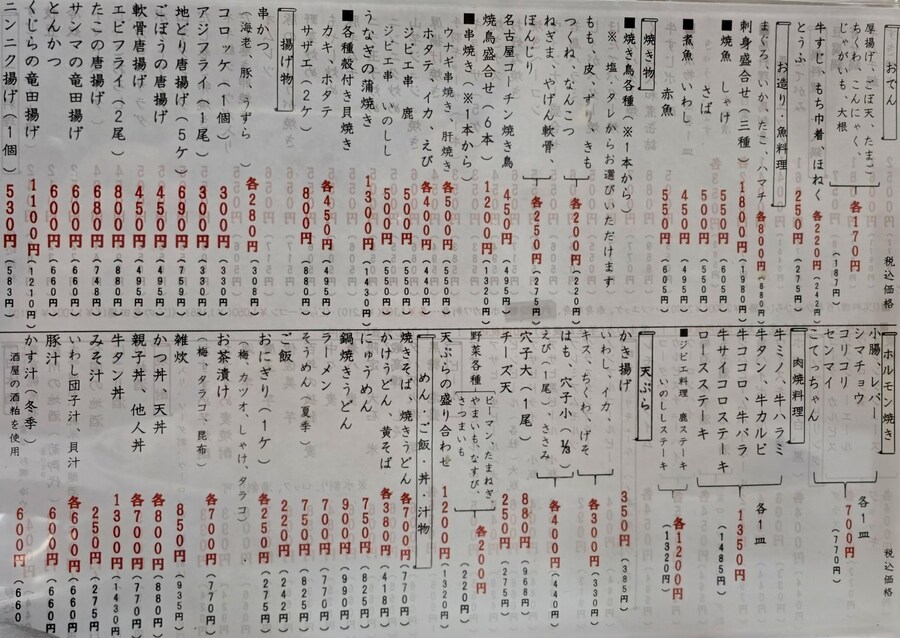 おでん
税込価格
厚揚げ、ごぼ天、たま
ちくわ、こんにゃく
じゃがいも、大根
各170円(187円)
牛すじ、もち巾着、ほねく 各220円(242円)
とうふ 250円(275円)
お造り・魚料理
まぐろ、いか、たこ、ハマチ 各800円(880円)
刺身盛合せ(三種) 1800円(1980円)
■焼魚 しゃけ 550円(605円)
さば 500円(550円)
■煮魚 いわし 450円(495円)
赤魚 550円(605円)
焼き物
■焼き鳥各種(※1本から)
(※塩、タレからお選びいただけます
もも、皮、ずり、きも
つくね、なんこつ
各200円(220円)
ねぎま、やげん軟骨、
ぼんじり
各250円(275円)
名古屋コーチン焼き鳥 450円(495円)
焼鳥盛合せ(6本) 1200円(1320円)
■串焼き(※1本から)
ウナギ串焼き、肝焼き 各500円(550円)
ホタテ、イカ、えび 各400円(440円)
ジビエ串 鹿 500円(550円)
ジビエ串 いのしし 500円(550円)
うなぎの蒲焼き 1300円(1430円)
■各種殻付き貝焼き
カキ、ホタテ 各450円(495円)
サザエ(2ケ) 800円(880円)
揚げ物
串かつ
(海老、豚、うずら) 各280円(308円)
コロッケ(1個) 300円(330円)
アジフライ(1尾) 300円(330円)
地どり唐揚げ(5ケ) 690円(759円)
ごぼうの唐揚げ 450円(495円)
軟骨唐揚げ 450円(495円)
エビフライ(2尾) 800円(880円)
たこの唐揚げ 680円(748円)
サンマの竜田揚げ 600円(660円)
とんかつ 600円(660円)
くじらの竜田揚げ 1100円(1210円)
ニンニク揚げ(1個) 530円(583円)
ホルモン焼き
税込価格
小腸、レバー
シマチョウ
コリコリ
センマイ
こてっちゃん
各1皿
700円(770円)
肉焼料理
牛ミノ、牛ハラミ
牛タン、牛カルビ
牛ココロ、牛バラ
牛サイコロステーキ
ロースステーキ
各1皿
1350円(1485円)
■ジビエ料理 鹿ステーキ
いのししステーキ
各1200円(1320円)
天ぷら
かき揚げ 350円(385円)
いわし、イカ、
キス、ちくわ、げそ
各300円(330円)
はも、穴子小(1/3)
えび(1尾)、ささみ
各400円(440円)
穴子大(1尾) 880円(968円)
チーズ天 250円(275円)
野菜各種
ピーマン、たまねぎ、
やまいも、なすび、
さつまいも
各200円(220円)
天ぷらの盛り合わせ 1200円(1320円)
めん・ご飯・丼・汁物
焼きそば、焼きうどん 各700円(770円)
かけうどん、黄そば 各380円(418円)
にゅうめん 750円(825円)
鍋焼きうどん 900円(990円)
ラーメン 700円(770円)
そうめん(夏季) 750円(825円)
ご飯 220円(242円)
おにぎり(1ケ) 各250円(275円)
(梅、カツオ、しゃけ、タラコ)
お茶漬け 各700円(770円)
(梅、タラコ、昆布)
雑炊 850円(935円)
かつ丼、天丼 各800円(880円)
親子丼、他人丼 各700円(770円)
牛タン丼 1300円(1430円)
みそ汁 250円(275円)
いわし団子汁、貝汁 各600円(660円)
豚汁 600円(660円)
かす汁(冬季) 600円(660
酒屋の酒粕を使用